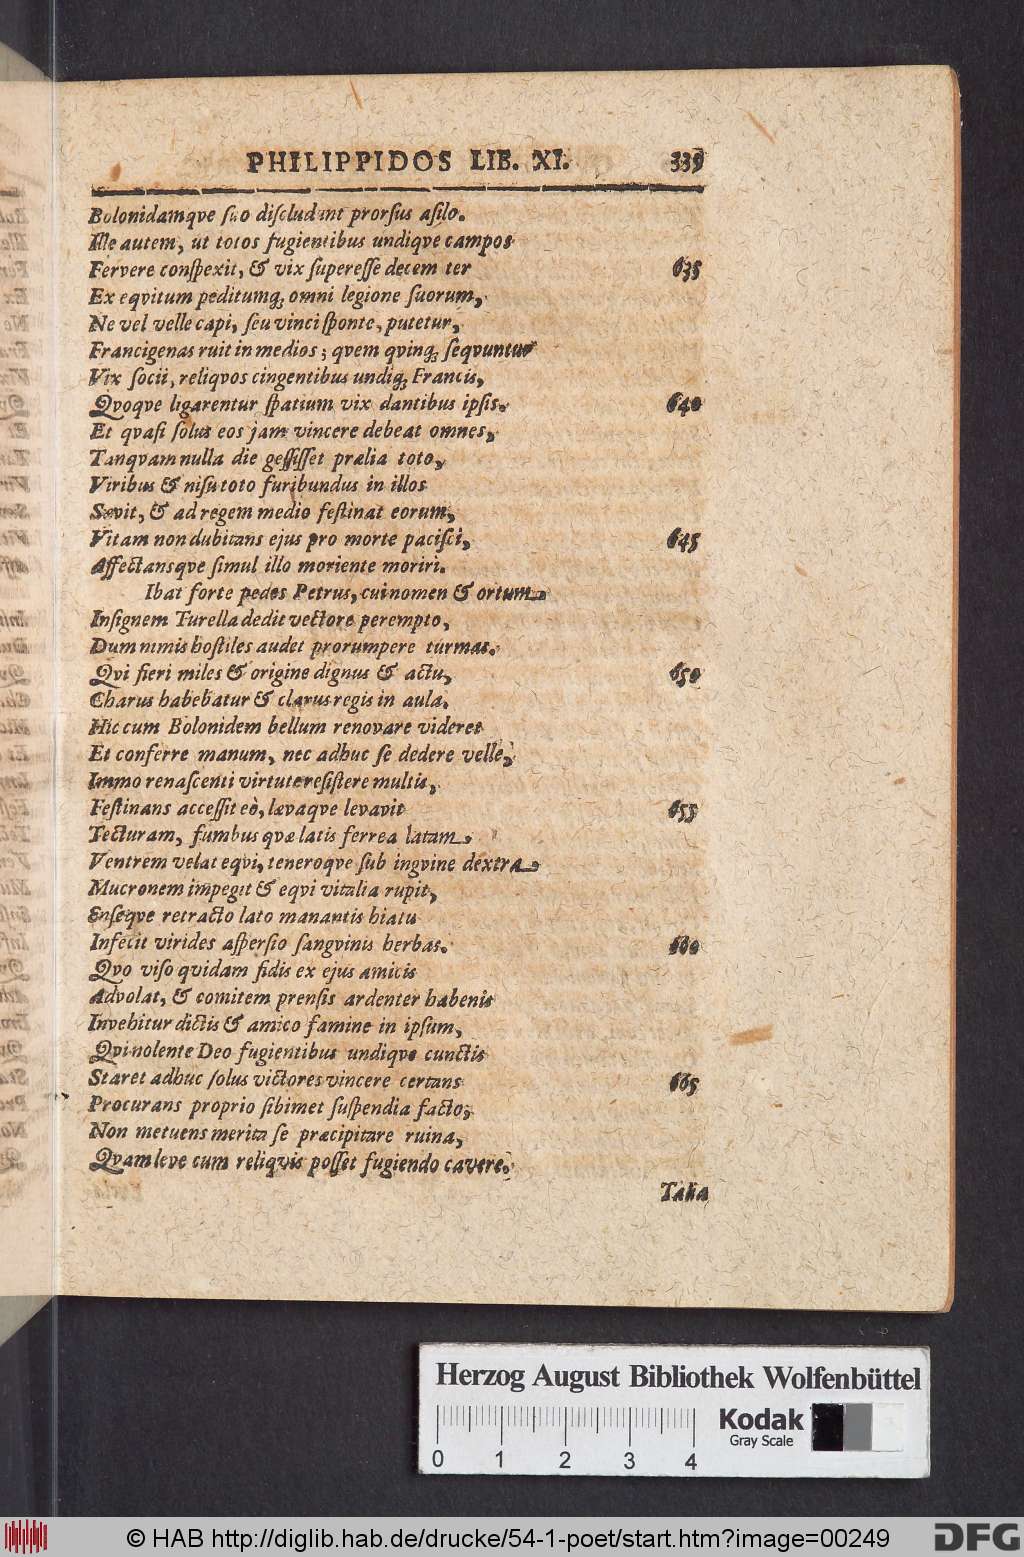 PHILIPPIDOS LIB. XI. 339
Bolonidamqve suo discludant prorsus asilo.
Ille autem, ut totos fugientibus undiqve campos
Fervere conspexit, & vix superesse decem ter 635
Ex eqvitum peditumq; omni legione suorum,
Ne vel velle capi, seu vinci sponte, putetur,
Francigenas ruit in medios; qvem qvinq; seqvuntur
Vix socii, reliqvos cingentibus undiq; Francis,
Qvoqve ligarentur spatium vix dantibus ipsis. 640
Et qvasi solus eos jam vincere debeat omnes,
Tanqvam nulla die gessisset prælia toto,
Viribus & nisu toto furibundus in illos
Sævit, & ad regem medio festinat eorum,
Vitam non dubitans ejus pro morte pacisci, 645
Affectansqve simul illo moriente moriri.
Ibat forte pedes Petrus, cui nomen & ortum
Insignem Turella dedit vectore perempto,
Dum nimis hostiles audet prorumpere turmas.
Qvi fieri miles & origine dignus & actu, 650
Charus habebatur & clarus regis in aula.
Hic cum Bolonidem bellum renovare videret
Et conferre manum, nec adhuc se dedere velle,
Immo renascenti virtute resistere multis,
Festinans accessit eò, lævaqve levavit 655
Tecturam, fumbus qvæ latis ferrea latam
Ventrem velat eqvi, teneroqve sub ingvine dextra
Mucronem impegit & eqvi vitalia rupit,
Enseqve retracto lato manantis hiatu
Infecit virides aspersio sangvinis herbas. 660
Qvo viso qvidam fidis ex ejus amicis
Advolat, & comitem prensis ardenter habenis
Invehitur dictis & amico famine in ipsum,
Qvi nolente Deo fugientibus undiqve cunctis
Staret adhuc solus victores vincere certans 665
Procurans proprio sibimet suspendia facto,
Non metuens merita se præcipitare ruina,
Qvam leve cum reliqvis posset fugiendo cavere.
Talia
Herzog August Bibliothek Wolfenbüttel
Kodak
Gray Scale
0 1 2 3 4
© HAB http://diglib.hab.de/drucke/54-1-poet/start.htm?image=00249
DFG